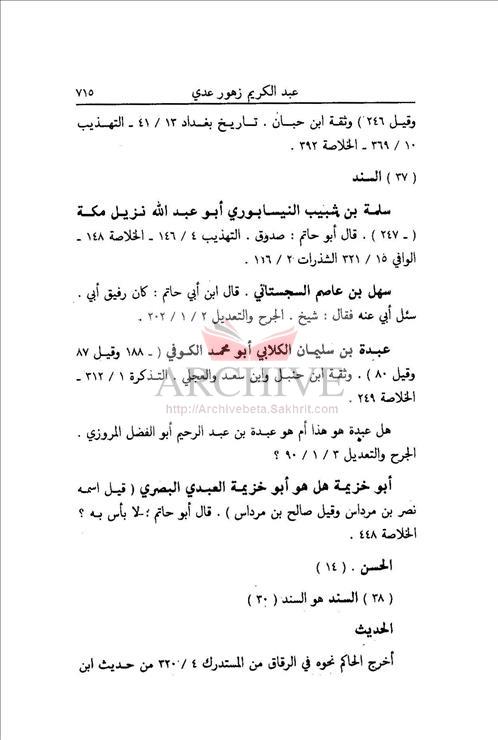 عبد الكريم زهور عدي
٧١٥
وقيل ٢٤٦ ) وثقة ابن حبان . تاريخ بغداد ١٣ / ٤١ ـ التهذيب
١٠ / ٣٦٩ ـ الخلاصة ٣٩٢ .
( ٣٧ ) السند
سلمة بن شبيب النيسابوري أبو عبد الله نزيل مكة
( ـ ٢٤٧ ) . قال أبو حاتم : صدوق . التهذيب ٤ / ١٤٦ ـ الخلاصة ١٤٨ ـ
الوافي ١٥ / ٣٢١ الشذرات ٢ / ١١٦ .
سهل بن عاصم السجستاني . قال ابن أبي حاتم : كان رفيق أبي .
سئل أبي عنه فقال : شيخ . الجرح والتعديل ٢ / ١ / ٢٠٢ .
عبدة بن سليمان الكلابي أبو محمد الكوفي ( ـ ١٨٨ وقيل ٨٧
وقيل ٨٠ ) . وثقة ابن حنبل وابن سعد والعجلي . التذكرة ١ / ٣١٢ ـ
ARCHIVE
http://Archivebeta.Sakhrit.com
الخلاصة ٢٤٩ .
هل عبدة هو هذا أم هو عبدة بن عبد الرحيم أبو الفضل المروزي .
الجرح والتعديل ٣ / ١ / ٩٠ ؟
أبو خزيمة هل هو أبو خزيمة العبدي البصري ( قيل اسمه
نصر بن مرداس وقيل صالح بن مرداس ) . قال أبو حاتم ؛ لا بأس به ؟
الخلاصة ٤٤٨ .
الحسن . ( ١٤ )
( ٣٨ ) السند هو السند ( ٣٠ )
الحديث
أخرج الحاكم نحوه في الرقاق من المستدرك ٤ / ٣٢٠ من حديث ابن